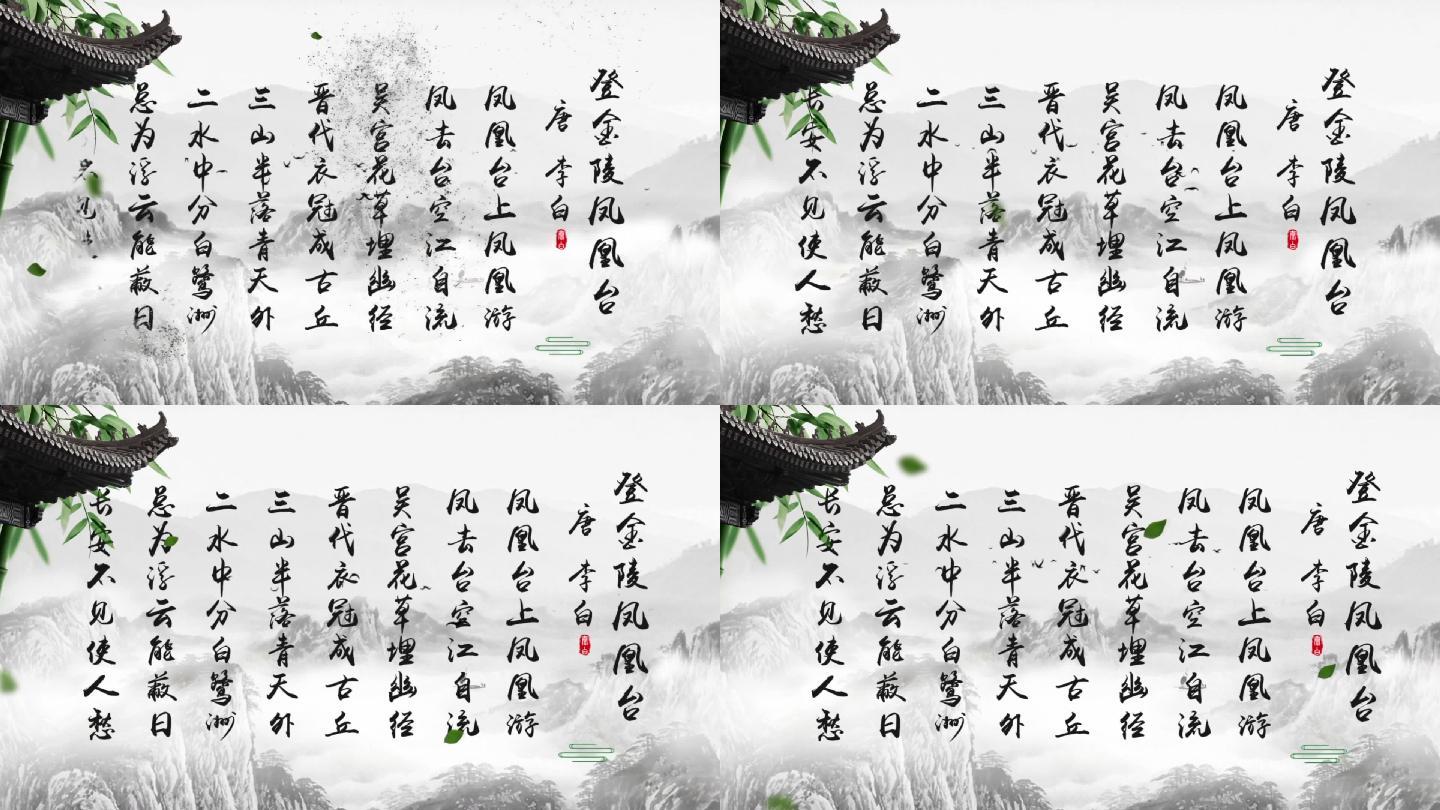 登金陵凤凰台
唐 李白
凤凰台上凤凰游
凤去台空江自流
吴宫花草埋幽经
晋代衣冠成古丘
三山半落青天外
二水中分白鹭洲
总为浮云能蔽日
登金陵凤凰台
唐 李白
凤凰台上凤凰游
凤去台空江自流
吴宫花草埋幽经
晋代衣冠成古丘
三山半落青天外
二水中分白鹭洲
总为浮云能蔽日
长安不见使人愁
登金陵凤凰台
唐 李白
凤凰台上凤凰游
凤去台空江自流
吴宫花草埋幽经
晋代衣冠成古丘
三山半落青天外
二水中分白鹭洲
总为浮云能蔽日
长安不见使人愁
登金陵凤凰台
唐 李白
凤凰台上凤凰游
凤去台空江自流
吴宫花草埋幽经
晋代衣冠成古丘
三山半落青天外
二水中分白鹭洲
总为浮云能蔽日
长安不见使人愁